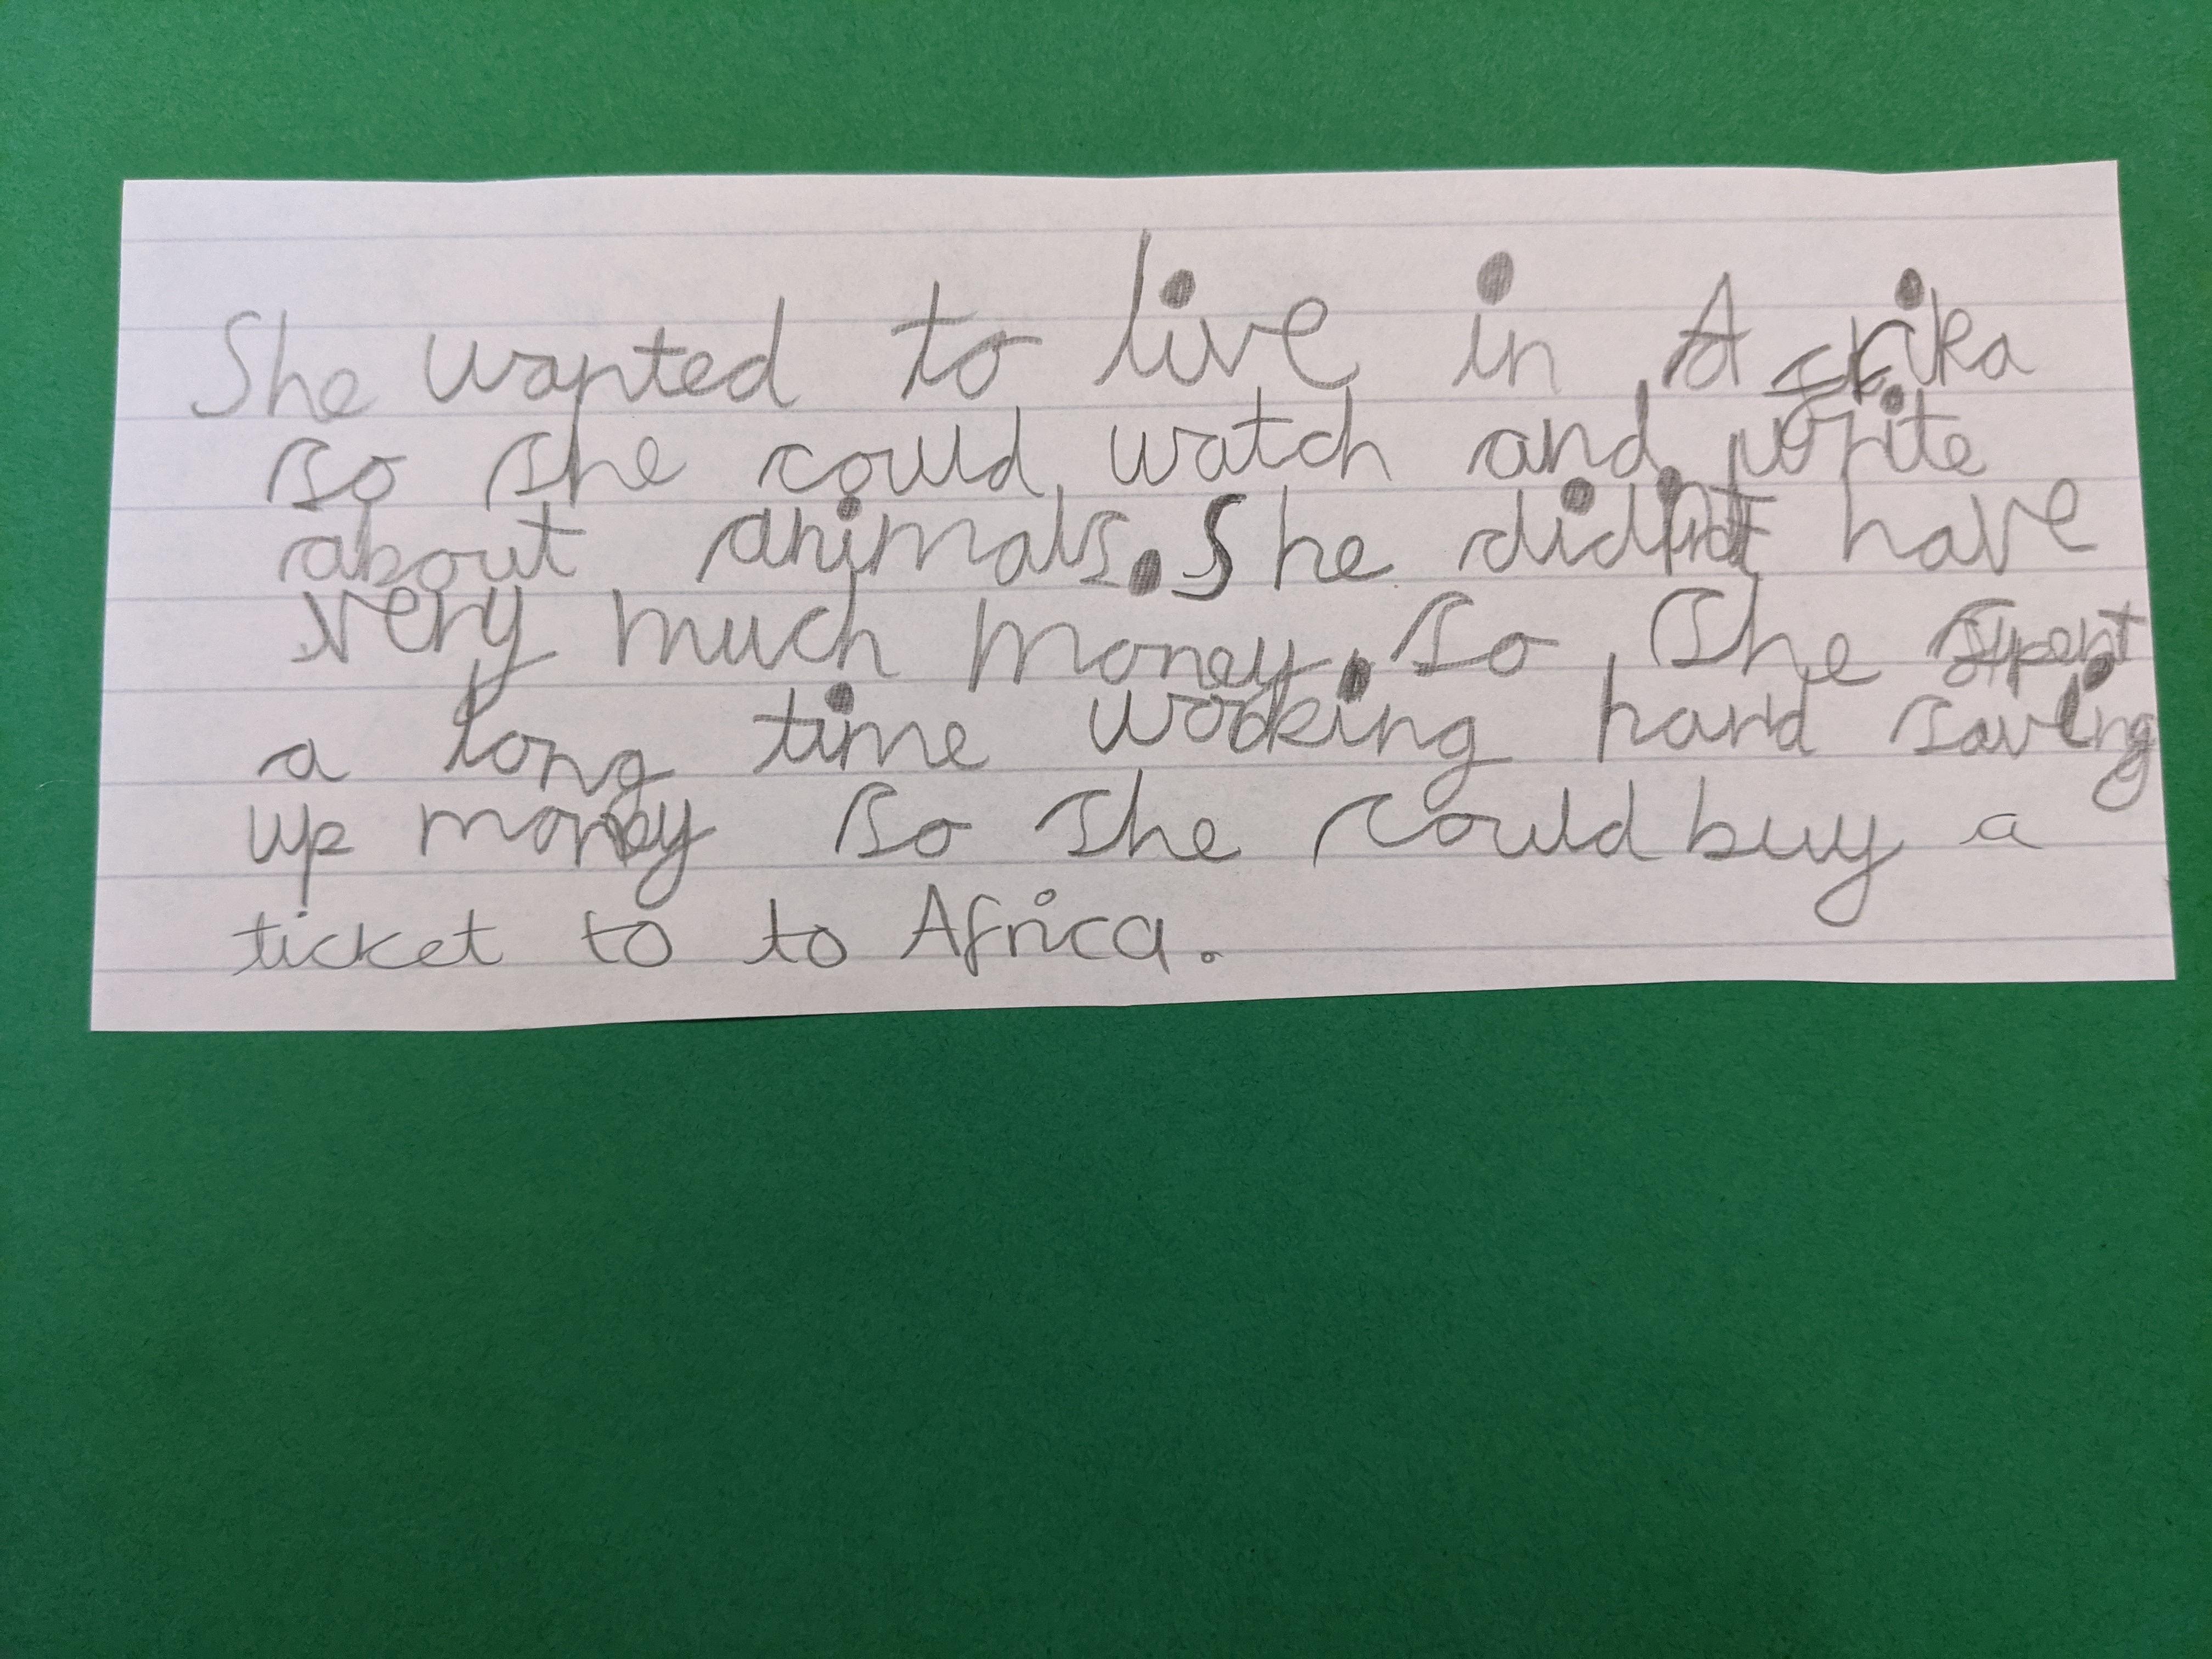 She wanted to live in Afrika
so she could watch and write
about animals. She didn't have
very much money. So she spent
a long time working hard saving
up money so she could buy a
ticket to to Africa.